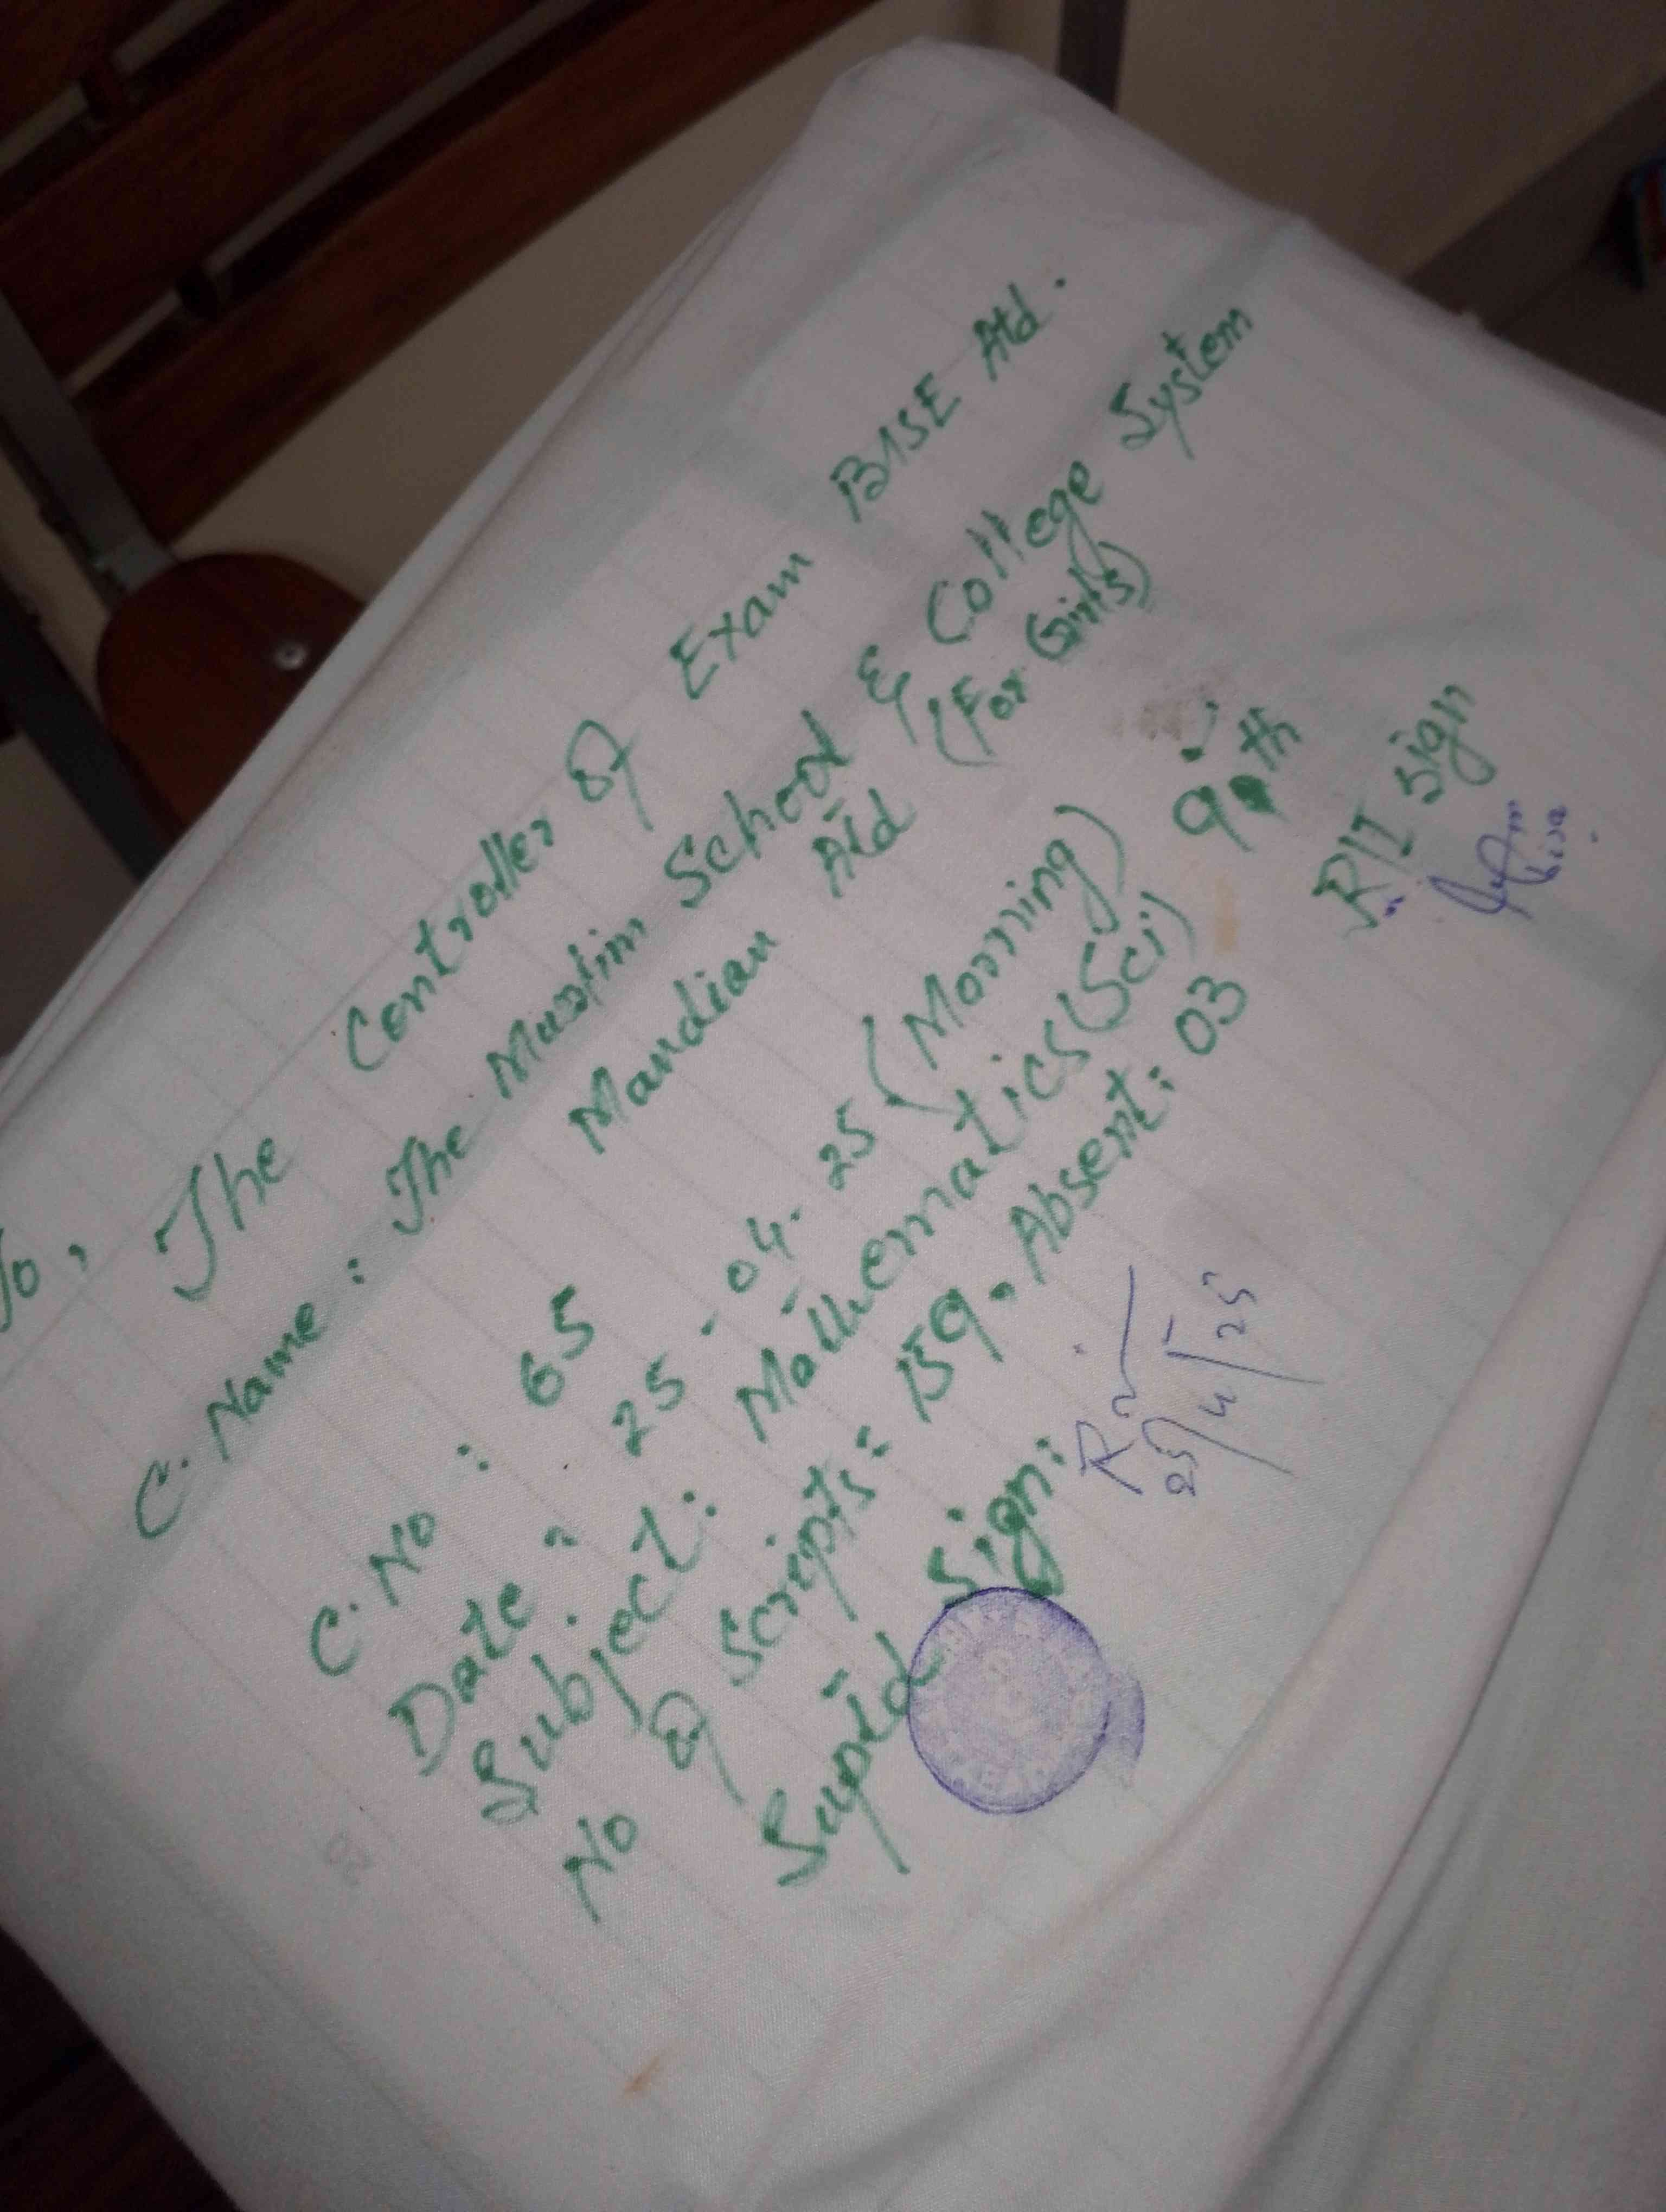 To, The Controller of Exam BISE Atd.
C. Name: The Muslim School & College System
Mandian Atd (For Girls)
C. No : 65
Date : 25 - 04 - 25 (Morning) 9th
Subject: Mathematics (Sci)
No of Scripts = 159. Absent: 03
Suptd Sign: R/I sign
25/4/25